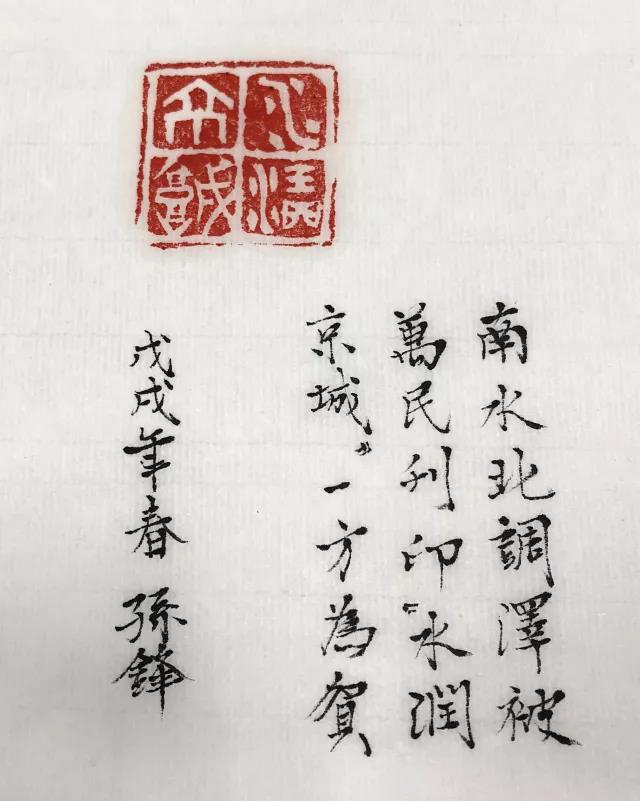 水潤
京城
南水北調澤被
萬民刊印“水润
京城”一方為賀
戊戌年春 孫鋒